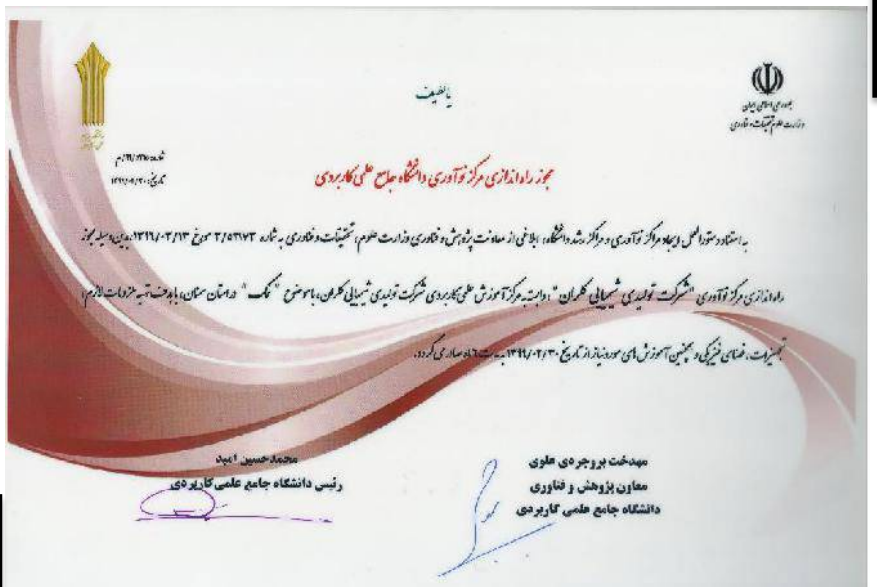 یا لطیف
جمهوری اسلامی ایران
وزارت علوم تحقیقات و فناوری
مجوز راه اندازی مرکز نوآوری دانشگاه جامع علمی کاربردی
به استناد دستورالعمل ایجاد مراکز نوآوری و مراکز رشد دانشگاه، ابلاغی از معاونت پژوهش و فناوری وزارت علوم، تحقیقات و فناوری به شماره ۳/۵۳۱۷۳ مورخ ۱۳۹۹/۰۳/۱۳ بدین وسیله مجوز
راه اندازی مرکز نوآوری "شرکت تولیدی شیمیایی کلران" وابسته به مرکز آموزش علمی کاربردی شرکت تولیدی شیمیایی کلران، با موضوع "نمک" در استان سمنان، با هدف تهیه ملزومات لازم،
تجهیزات، فضای فیزیکی و همچنین آموزش های مورد نیاز از تاریخ به مدت ۶ ماه صادر می گردد.
مهدخت بروجردی علوی
معاون پژوهش و فناوری
دانشگاه جامع علمی کاربردی
محمدحسین امید
رئیس دانشگاه جامع علمی کاربردی